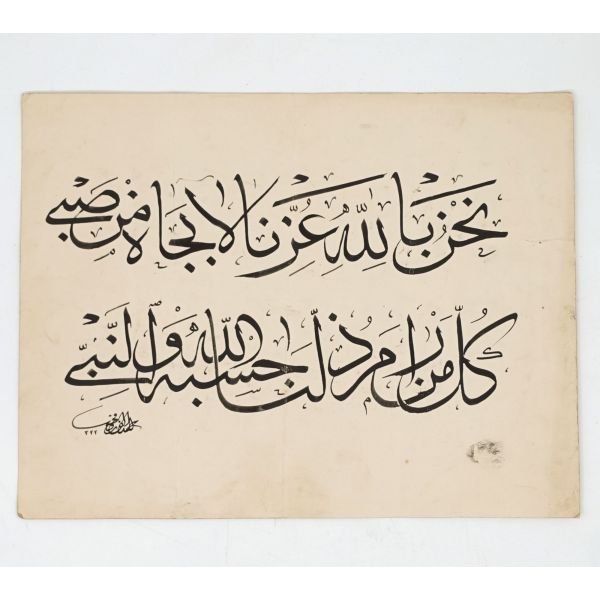 نحن بالله عزنا لا بجاه منصبي
كل من رام ذلنا حسبه الله والنبي
٣٢٢